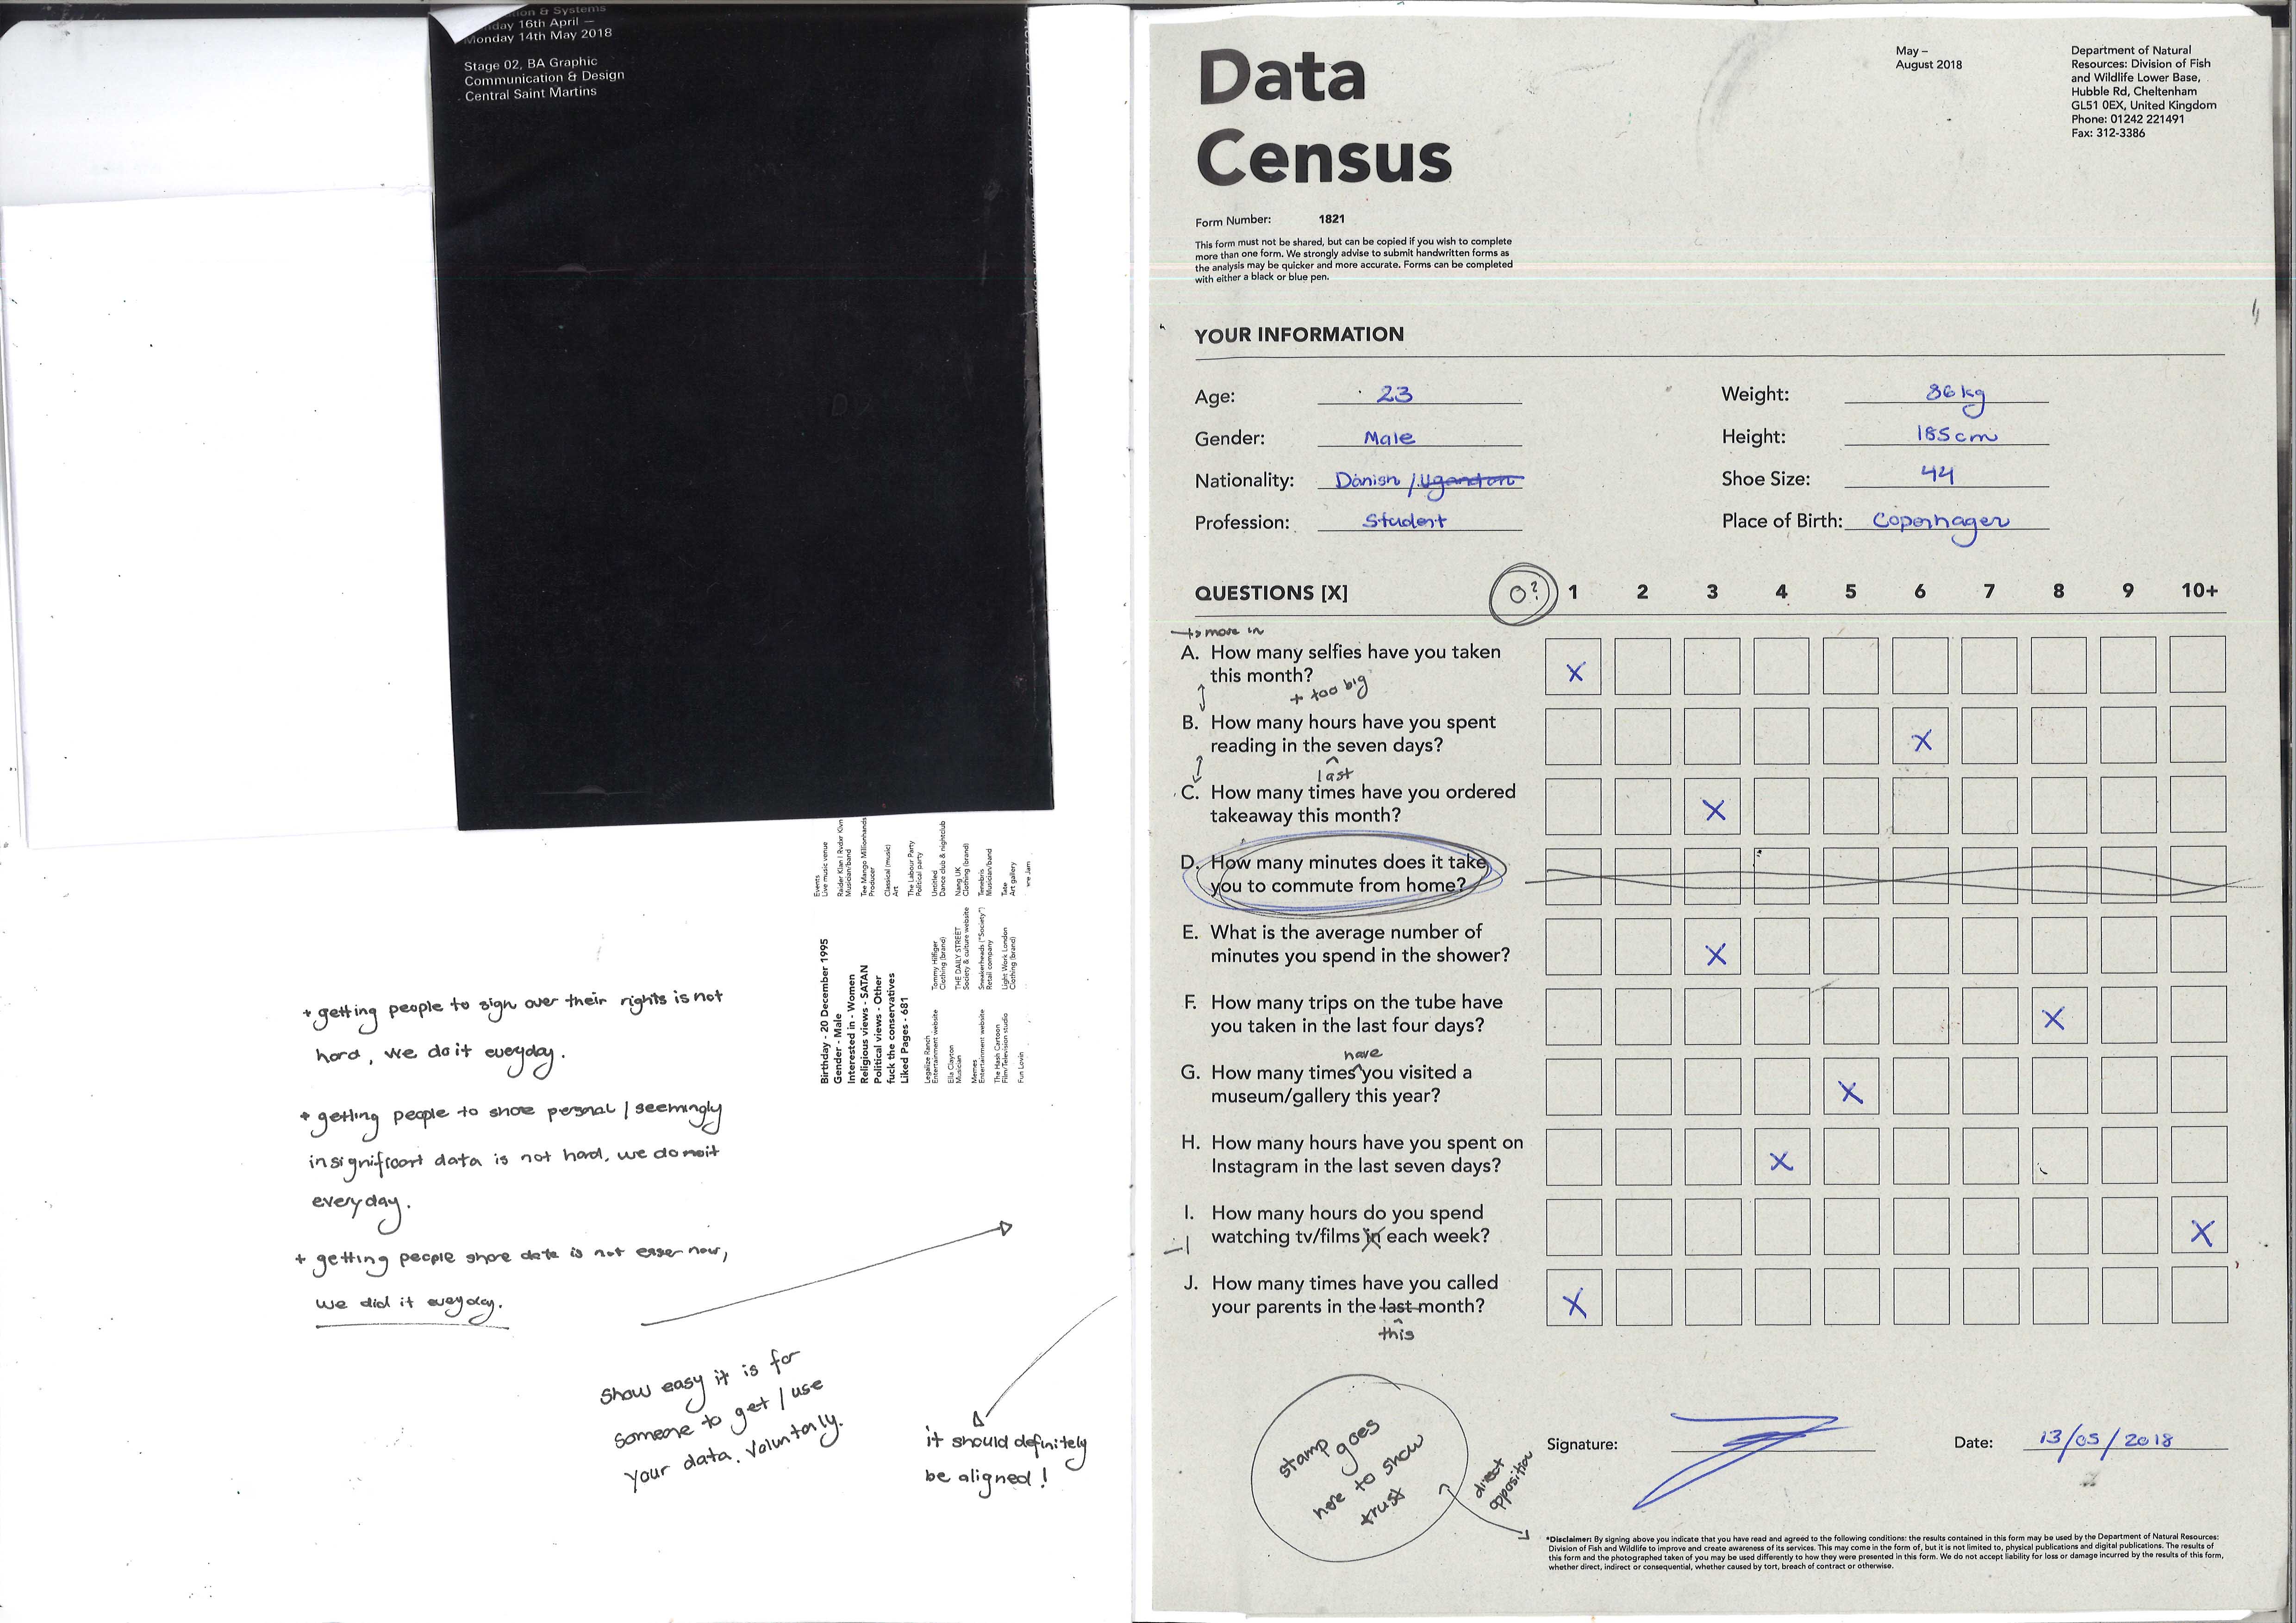 & Systems
day 16th April –
Monday 14th May 2018
Stage 02, BA Graphic
Communication & Design
Central Saint Martins
Events
Live music venue
Musician/band
Tee Mango Millionhands
Producer
Classical (music)
Art
The Labour Party
Political party
Untitled
Dance club & nightclub
Nang UK
Clothing (brand)
Tenebris
Musician/band
Tate
Art gallery
Birthday - 20 December 1995
Gender - Male
Interested in - Women
Religious views - SATAN
Political views - Other
fuck the conservatives
Liked Pages - 681
Legalize Ranch
Entertainment website
Tommy Hilfiger
Clothing (brand)
Ella Clayton
Musician
THE DAILY STREET
Society & culture website
Memes
Entertainment website
Sneakerheads ("Society")
Retail company
The Hash Cartoon
Film/Television studio
Light Work London
Clothing (brand)
Fun Lovin
+ getting people to sign over their rights is not
hard, we do it everyday.
+ getting people to share personal / seemingly
insignificant data is not hard, we do it
everyday.
+ getting people share data is not now,
we did it everyday.
show easy it is for
someone to get / use
your data. Voluntarly.
it should definitely
be aligned!
Data
Census
May –
August 2018
Department of Natural
Resources: Division of Fish
and Wildlife Lower Base,
Hubble Rd, Cheltenham
GL51 0EX, United Kingdom
Phone: 01242 221491
Fax: 312-3386
Form Number: 1821
This form must not be shared, but can be copied if you wish to complete
more than one form. We strongly advise to submit handwritten forms as
the analysis may be quicker and more accurate. Forms can be completed
with either a black or blue pen.
YOUR INFORMATION
Age: 23 Weight: 86kg
Gender: Male Height: 185cm
Nationality: Danish / Ugandan Shoe Size: 44
Profession: Student Place of Birth: Copenhagen
QUESTIONS [X] 0? 1 2 3 4 5 6 7 8 9 10+
→ move in
A. How many selfies have you taken
this month? X
+ too big
B. How many hours have you spent
reading in the seven days? X
last
C. How many times have you ordered
takeaway this month? X
D. How many minutes does it take
you to commute from home?
E. What is the average number of
minutes you spend in the shower? X
F. How many trips on the tube have
you taken in the last four days? X
have
G. How many times you visited a
museum/gallery this year? X
H. How many hours have you spent on
Instagram in the last seven days? X
I. How many hours do you spend
watching tv/films in each week? X
J. How many times have you called
your parents in the last month? X
this
stamp goes
here to show
trust
direct
opposition
Signature: Date: 13/05/2018
*Disclaimer: By signing above you indicate that you have read and agreed to the following conditions: the results contained in this form may be used by the Department of Natural Resources:
Division of Fish and Wildlife to improve and create awareness of its services. This may come in the form of, but it is not limited to, physical publications and digital publications. The results of
this form and the photographed taken of you may be used differently to how they were presented in this form. We do not accept liability for loss or damage incurred by the results of this form,
whether direct, indirect or consequential, whether caused by tort, breach of contract or otherwise.